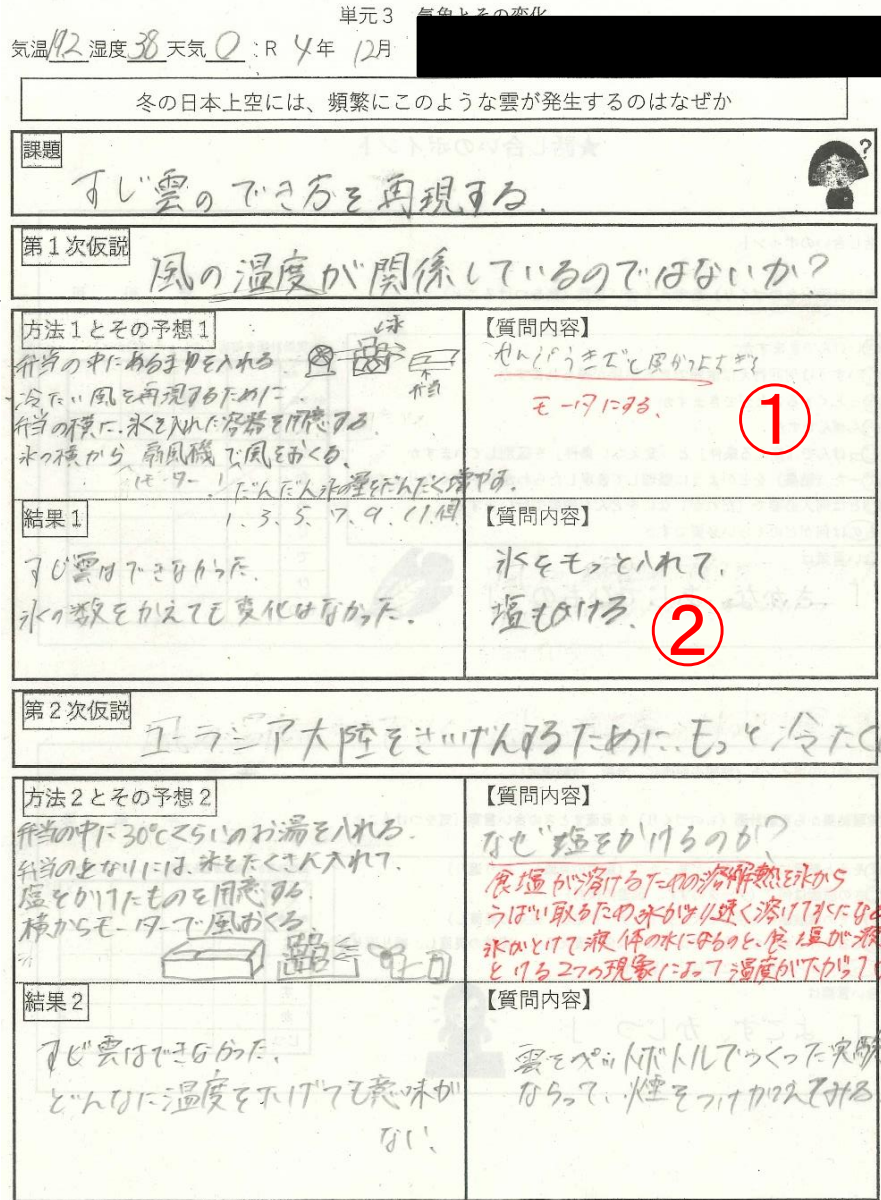 単元3　気象とその変化
気温19.2 湿度38 天気〇 :R 4年 12月
冬の日本上空には、頻繁にこのような雲が発生するのはなぜか
課題
?
すじ雲のでき方を再現する.
第1次仮説
風の温度が関係しているのではないか?
方法1とその予想1
氷
弁当の中にあるまゆを入れる
弁当
冷たい風を再現するために
弁当の横に、氷を入れた容器を用意する.
氷の横から扇風機で風をおくる.
(モーター)
だんだん氷の量をだんだん増やす.
1.3.5.7.9.11個
【質問内容】
せんぷうきだと風がつよすぎる
モータにする.
①
結果1
すじ雲はできなかった.
氷の数をかえても変化はなかった.
【質問内容】
氷をもっと入れて、
塩もかける.
②
第2次仮説
ユーラシア大陸をさいげんするために、もっと冷たく
方法2とその予想2
弁当の中に30℃くらいのお湯を入れる.
弁当のとなりには、氷をたくさん入れて
塩をかけたものを用意する
横からモーターで風おくる
【質問内容】
なぜ塩をかけるのか?
食塩が溶けるための溶解熱を氷から
うばい取るため氷がより速く溶けて水にな
氷がとけて液体の水になるのと、食塩が液
とける2つの現象によって温度が下がって
結果2
すじ雲はできなかった.
どんなに温度を下げても意味が
ない.
【質問内容】
雲をペットボトルでつくった実験
ならって、煙をつけかえてみる